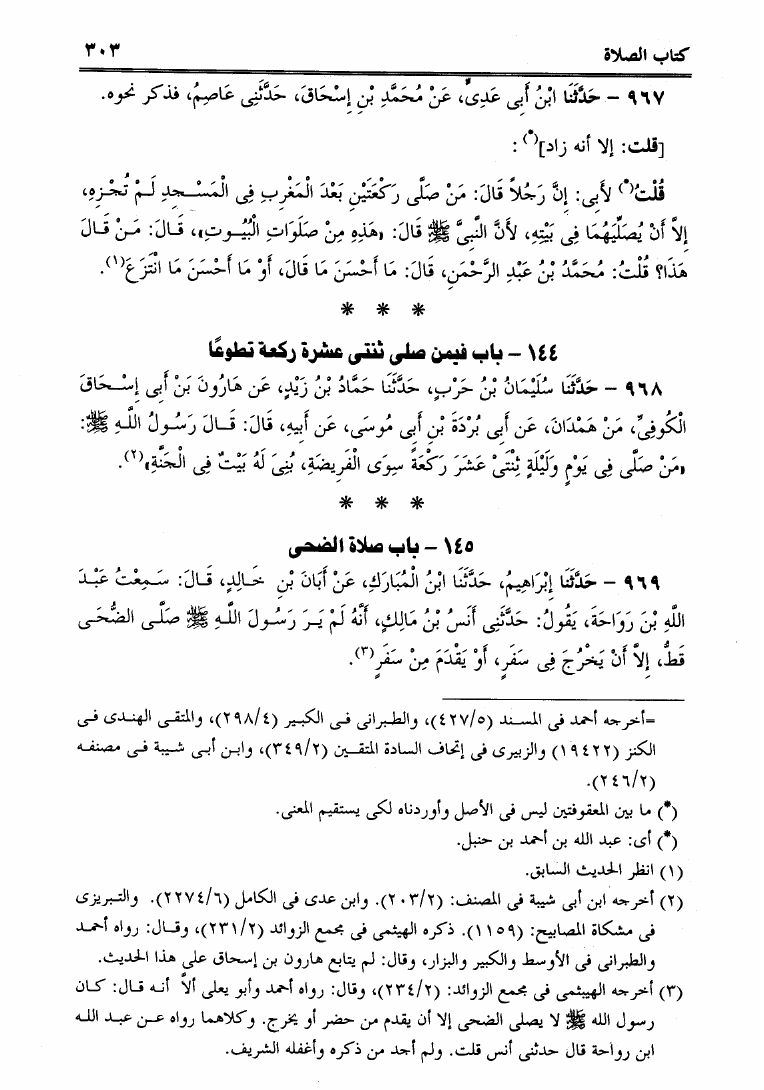 كتاب الصلاة ٣٠٣
٩٦٧ – حَدَّثَنَا ابْنُ أَبِى عَدِىٍّ، عَنْ مُحَمَّدِ بْنِ إِسْحَاقَ، حَدَّثَنِى عَاصِمُ، فذكر نحوه.
[قلت: إلا أنه زاد](*) :
قُلْتُ(*) لأَبِى: إِنَّ رَجُلاً قَالَ: مَنْ صَلَّى رَكْعَتَيْنِ بَعْدَ الْمَغْرِبِ فِى الْمَسْجِدِ لَمْ تُجْزِهِ،
إِلاَّ أَنْ يُصَلِّيَهُمَا فِى بَيْتِهِ، لأَنَّ النَّبِىَّ ﷺ قَالَ: «هَذِهِ مِنْ صَلَوَاتِ الْبُيُوتِ»، قَالَ: مَنْ قَالَ
هَذَا؟ قُلْتُ: مُحَمَّدُ بْنُ عَبْدِ الرَّحْمَنِ، قَالَ: مَا أَحْسَنَ مَا قَالَ، أَوْ مَا أَحْسَنَ مَا انْتَزَعَ(١).
* * *
١٤٤ – باب فيمن صلى ثنتى عشرة ركعة تطوعًا
٩٦٨ – حَدَّثَنَا سُلَيْمَانُ بْنُ حَرْبٍ، حَدَّثَنَا حَمَّادُ بْنُ زَيْدٍ، عَن هَارُونَ بْنَ أَبِى إِسْحَاقَ
الْكُوفِىِّ، مَنْ هَمْدَانَ، عَن أَبِى بُرْدَةَ بْنِ أَبِى مُوسَى، عَن أَبِيهِ، قَالَ: قَالَ رَسُولُ اللَّهِ ﷺ:
«مَنْ صَلَّى فِى يَوْمٍ وَلَيْلَةٍ ثِنْتَىْ عَشَرَ رَكْعَةً سِوَى الْفَرِيضَةِ، بُنِىَ لَهُ بَيْتٌ فِى الْجَنَّةِ»(٢).
* * *
١٤٥ – باب صلاة الضحى
٩٦٩ – حَدَّثَنَا إِبْرَاهِيمُ، حَدَّثَنَا ابْنُ الْمُبَارَكِ، عَنْ أَبَانَ بْنِ خَالِدٍ، قَالَ: سَمِعْتُ عَبْدَ
اللَّهِ بْنَ رَوَاحَةَ، يَقُولُ: حَدَّثَنِى أَنَسُ بْنُ مَالِكٍ، أَنَّهُ لَمْ يَرَ رَسُولَ اللَّهِ ﷺ صَلَّى الضُّحَى
قَطُّ، إِلاَّ أَنْ يَخْرُجَ فِى سَفَرٍ، أَوْ يَقْدَمَ مِنْ سَفَرٍ(٣).
=أخرجه أحمد فى المسند (٤٢٧/٥)، والطبرانى فى الكبير (٢٩٨/٤)، والمتقى الهندى فى
الكنز (١٩٤٢٢) والزبيرى فى إتحاف السادة المتقين (٣٤٩/٢)، وابن أبى شيبة فى مصنفه
(٢٤٦/٢).
(*) ما بين المعقوفتين ليس فى الأصل وأوردناه لكى يستقيم المعنى.
(*) أى: عبد الله بن أحمد بن حنبل.
(١) انظر الحديث السابق.
(٢) أخرجه ابن أبى شيبة فى المصنف: (٢٠٣/٢). وابن عدى فى الكامل (٢٢٧٤/٦). والتبريزى
فى مشكاة المصابيح: (١١٥٩). ذكره الهيثمى فى مجمع الزوائد (٢٣١/٢)، وقال: رواه أحمد
والطبرانى فى الأوسط والكبير والبزار، وقال: لم يتابع هارون بن إسحاق على هذا الحديث.
(٣) أخرجه الهيثمى فى مجمع الزوائد: (٢٣٤/٢)، وقال: رواه أحمد وأبو يعلى ألا أنه قال: كان
رسول الله ﷺ لا يصلى الضحى إلا أن يقدم من حضر أو يخرج. وكلاهما رواه عن عبد الله
ابن رواحة قال حدثنى أنس قلت. ولم أجد من ذكره وأغفله الشريف.